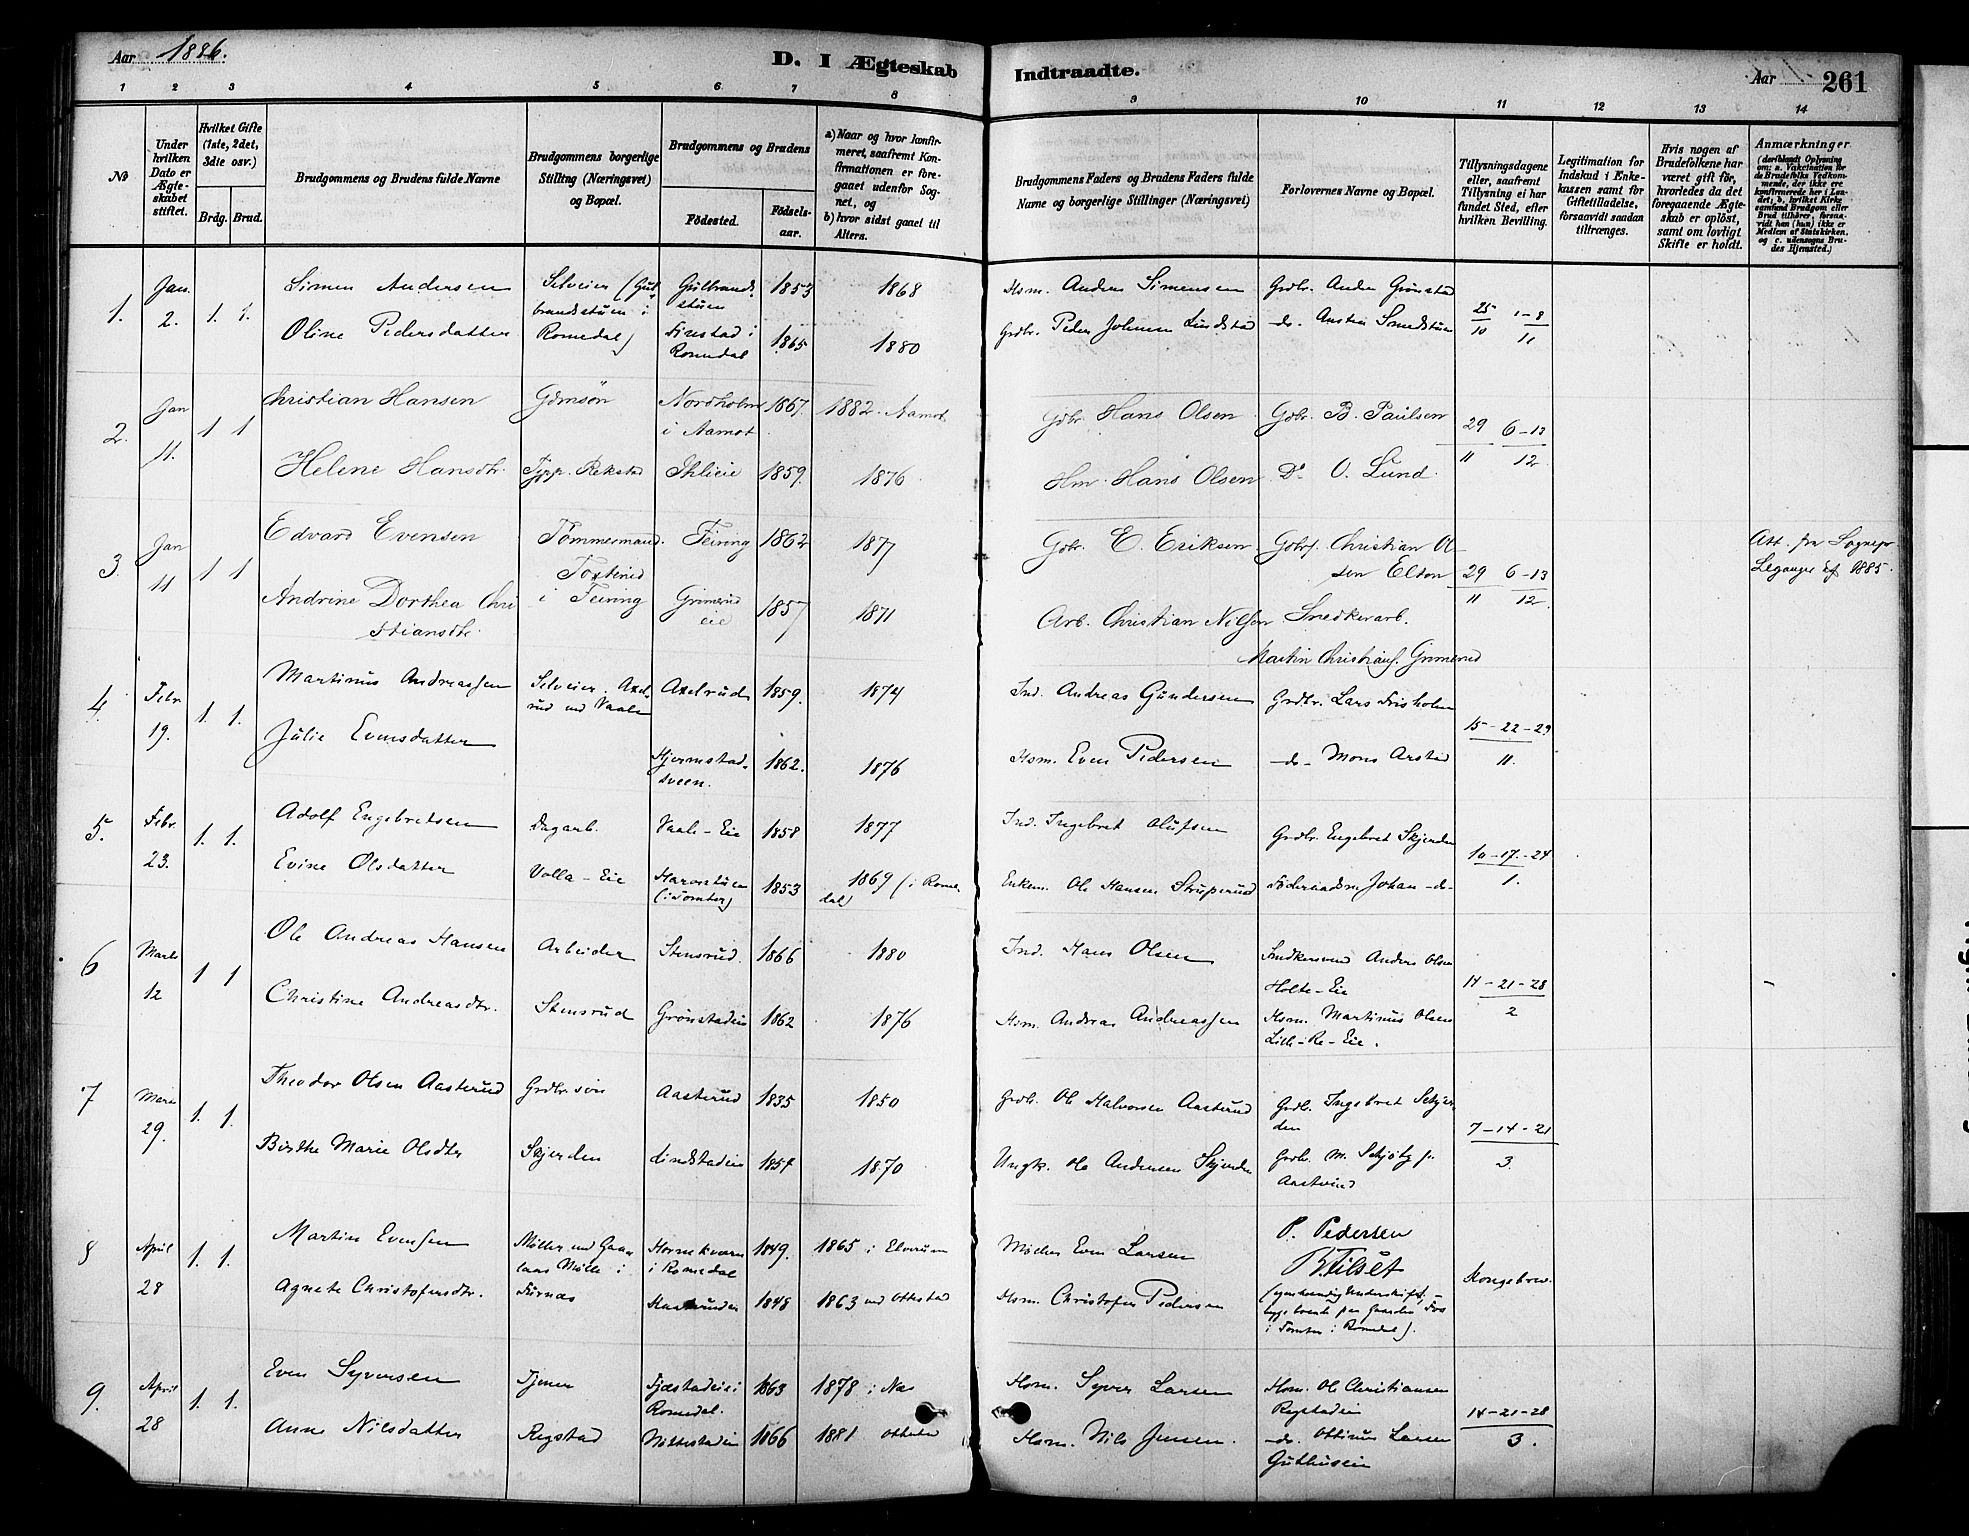 Aar 1886.
D. I Ægteskab Indtraadte.
Aar 261
1 2 3 4 5 6 7 8 9 10 11 12 13 14
No
Under hvilken Dato er Ægteskabet stiftet.
Hvilket Gifte (1ste, 2det, 3die osv.)
Brdg. Brud.
Brudgommens og Brudens fulde Navne
Brudgommens borgerlige Stilling (Næringsvei) og Bopæl.
Brudgommens og Brudens
Fødested. Fødselsaar.
a) Naar og hvor konfirmeret, saafremt Konfirmationen er foregaaet udenfor Sognet, og
b) hvor sidst gaaet til Alters.
Brudgommens Faders og Brudens Faders fulde Navne og borgerlige Stillinger (Næringsvei)
Forlovernes Navne og Bopæl.
Tillysningsdagene eller, saafremt Tillysning ei har fundet Sted, efter hvilken Bevilling.
Legitimation for Indskud i Enkekassen samt for Giftetilladelse, forsaavidt saadan tiltrænges.
Hvis nogen af Brudefolkene har været gift før, hvorledes da det foregaaende Ægteskab er opløst, samt om lovligt Skifte er holdt.
Anmærkninger
(deriblandt Oplysning om: a. Vakcination for de Brudefolks Vedkommende, der ikke ere konfirmerede her i Landet; b. hvilket Kirkesamfund Brudgom eller Brud tilhører, forsaavidt han (hun) ikke er Medlem af Statskirken, og c. udensogns Brudes Hjemsted.)
1. Jan. 2. 1. 1.
Simen Andersen Selveier (Gulbrandstuen i Romedal) Gulbrandstuen 1853 1868 Hsm. Anders Simensen Grdbr. Anders Grønstad
Oline Pedersdatter Finstad i Romedal 1865 1880 Grdbr. Peder Johnsen Lundstad do. Austin Smedstuen
25/10 1-8/11
2. Jan 11. 1 1
Christian Hansen Gdmsøn Nordholm i Aamot 1867. 1882. Aamot Gdbr Hans Olsen Gdbr. B. Paulsen
Helene Hansdtr. Rekstad 1859. 1876 Hm. Hans Olsen Do O. Lund.
29/11 6-13/12
3. Jan 11 1 1
Edvard Evensen Tømmermand. i Feiring Feiring 1862 1877 Gdbr. E. Eriksen Gdbrf. Christian Olsen Elton
Andrine Dorthea Christiansdtr. Grimerud eie 1857 1871 Arb. Christian Nilsen Snedkerarb. Martin Christians. Grimerud
29/11 6-13/12.
Att. fra Sognepr. Leganger 1885.
4. Febr. 19. 1. 1.
Martinus Andreassen Selveier. Axelrud ved Vaale Axelrud 1859. 1874 Ind. Andreas Gundersen Grdbr. Lars Frisholm
Julie Evensdatter Hjermstadsveen. 1862. 1876 Hsm. Even Pedersen do Mons Arstad
15-22-29/11.
5. Febr. 23. 1. 1.
Adolf Engebretsen Dagarb. Vaale-Eie 1858 1877 Ind. Ingebret Olufsen Grdbr. Engebret Skjerden
Evine Olsdatter Volla-Eie 1853 1869 (i Romedal) Enkem. Ole Hansen Struperud Føderaadsm. Johan do
10-17-24/1.
6 Marts 12 1 1
Ole Andreas Hansen Arbeider Stensrud. 1866 1880 Ind. Hans Olsen Snedkersvend Anders Olsen Holte-Eie
Christine Andreasdtr. Stensrud Grønstadeie 1862 1876 Hsm. Andreas Andreassen Hsm. Martinus Olsen Lille-Re-Eie.
14-21-28/2
7 Marts 29. 1. 1.
Theodor Olsen Aasterud Grdbr.søn Aasterud 1835 1850 Grdb. Ole Halvorsen Aasterud Grdb. Ingebret Skjerden
Birthe Marie Olsdtr Skjerden Lindstadeie 1854 1870 Ungk. Ole Andersen Skjerden Grdbr. M. Schjøtz Aasterud
7-14-21/3
8 April 28 1. 1.
Martin Evensen Møller ved Mølle i Furnæs Hornekværn i Romedal 1849. 1865 i Elverum Møller Even Larsen P. Pedersen
Agnete Christofersdtr. 1848 1863 ved Ottestad Hsm. Christofer Pedersen B. Tilset (egenhændig Underskrift, begge boende paa Gaarden Fos i Tomter i Romedal).
Kongebrev.
9. April 28 1. 1.
Even Syversen Tjener Fjæstadeie i Romedal. 1863 1878 i Næs Hsm. Syver Larsen Hsm. Ole Christiansen Rogstadeie
Anne Nilsdatter Rogstad 1866 1881 Ottestad Hsm. Nils Jensen. do. Ottinus Larsen Guthuseie
14-21-28/3.